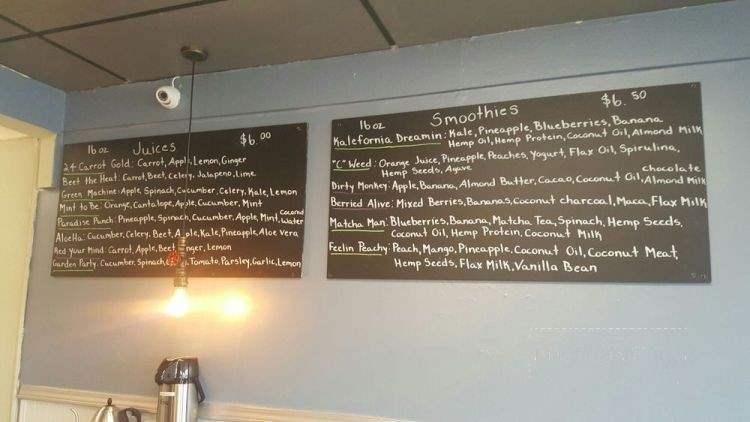 16 oz Juices $6.00
24 Carrot Gold: Carrot, Apple, Lemon, Ginger
Beet the Heat: Carrot, Beet, Celery, Jalapeno, Lime
Green Machine: Apple, Spinach, Cucumber, Celery, Kale, Lemon
Mint to Be: Orange, Cantalope, Apple, Cucumber, Mint
Paradise Punch: Pineapple, Spinach, Cucumber, Apple, Mint, Cocond Water
AloeHa: Cucumber, Celery, Beet, Apple, Kale, Pineapple, Aloe Vera
Red your Mind: Carrot, Apple, Beet, Ginger, Lemon
Garden Party: Cucumber, Spinach, Tomato, Parsley, Garlic, Lemon
16 oz Smoothies $6.50
Kalefornia Dreamin: Kale, Pineapple, Blueberries, Banana
Hemp Oil, Hemp Protein, Coconut Oil, Almond Milk
"C" Weed: Orange Juice, Pineapple, Peaches, Yogurt, Flax Oil, Spirulina,
Hemp Seeds, Agave
chocolate
Dirty Monkey: Apple, Banana, Almond Butter, Cacao, Coconut Oil, Almond Milk
Berried Alive: Mixed Berries, Bananas, Coconut charcoal, Maca, Flax Milk
Matcha Man: Blueberries, Banana, Matcha Tea, Spinach, Hemp Seeds,
Coconut Oil, Hemp Protein, Coconut Milk
Feelin Peachy: Peach, Mango, Pineapple, Coconut Oil, Coconut Meat,
Hemp Seeds, Flax Milk, Vanilla Bean